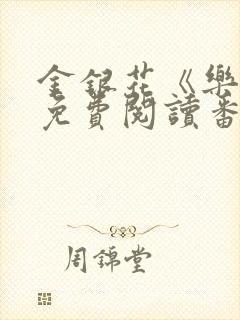 金銀花《樂
免費閱讀番
周錦堂